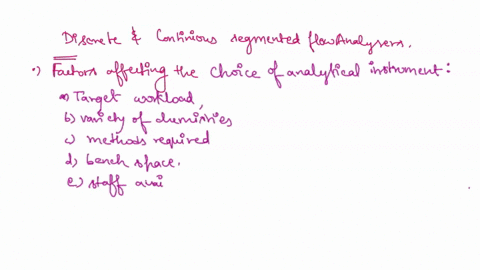 Discrete & Continious segmented flowAnalysers.
•) Factors affecting the choice of analytical instrument:
a) Target workload,
b) variety of chemistries
c) methods required
d) bench space.
e) staff avai